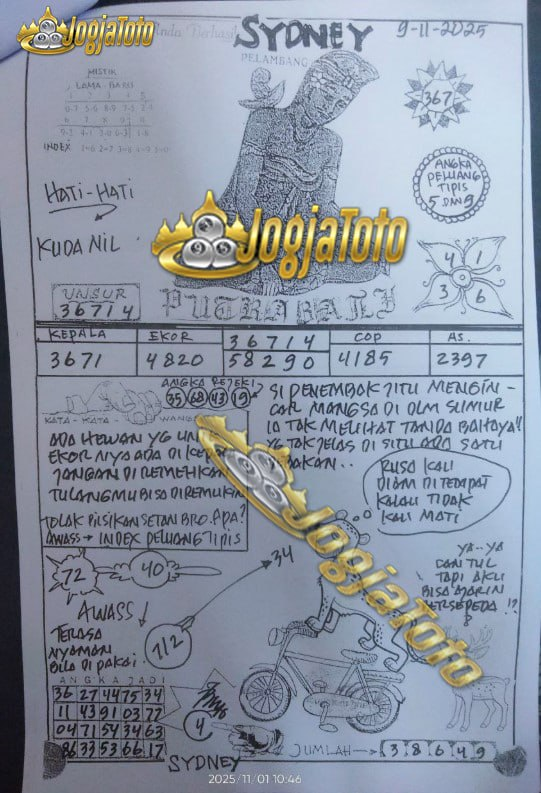 JogjaToto
Anda Berhasil
SYDNEY
9-11-2025
PELAMBANG
MISTIK
LAMA BARU
INDEX
367
HATI-HATI
KUDA NIL
ANGKA
PELUANG
TIPIS
5 DAN 9
JogjaToto
4 1
3 6
UNSUR
36714
PUTRA BALI
KEPALA EKOR 36714 COP AS.
3671 4820 58290 4185 2397
ANGKA REJEKI?
35 68 43 19
KATA-KATA
SI PENEMBAK JITU MENGIN-
CAR MANGSA DI DLM SUMUR
IA TAK MELIHAT TANDA BAHAYA!!
YG TAK JELAS DI SITU ADA SATU
ADA HEWAN YG
EKOR NYA ADA DI
JANGAN DI REMEHKAN
TULANGMU BISA DI REMUKIN
TOLAK BISIKAN SETAN BRO. ADA?
AWASS → INDEX PELUANG TIPIS
RUSA KALI
DIAM DI TEMPAT
KALAU TIDAK
KALI MATI
JogjaToto
72
40
34
YA-YA
TAPI AKU
BISA AJARIN
BERSEPEDA !?
AWASS!
TERASA
NYAMAN
BILA DI PAKAI.
7/2
ANGKA JADI
36 27 44 75 34
11 43 91 03 77
04 71 54 34 63
86 33 53 66 17
4
SYDNEY
JUMLAH → 3 8 6 4 9
2025/11/01 10:46